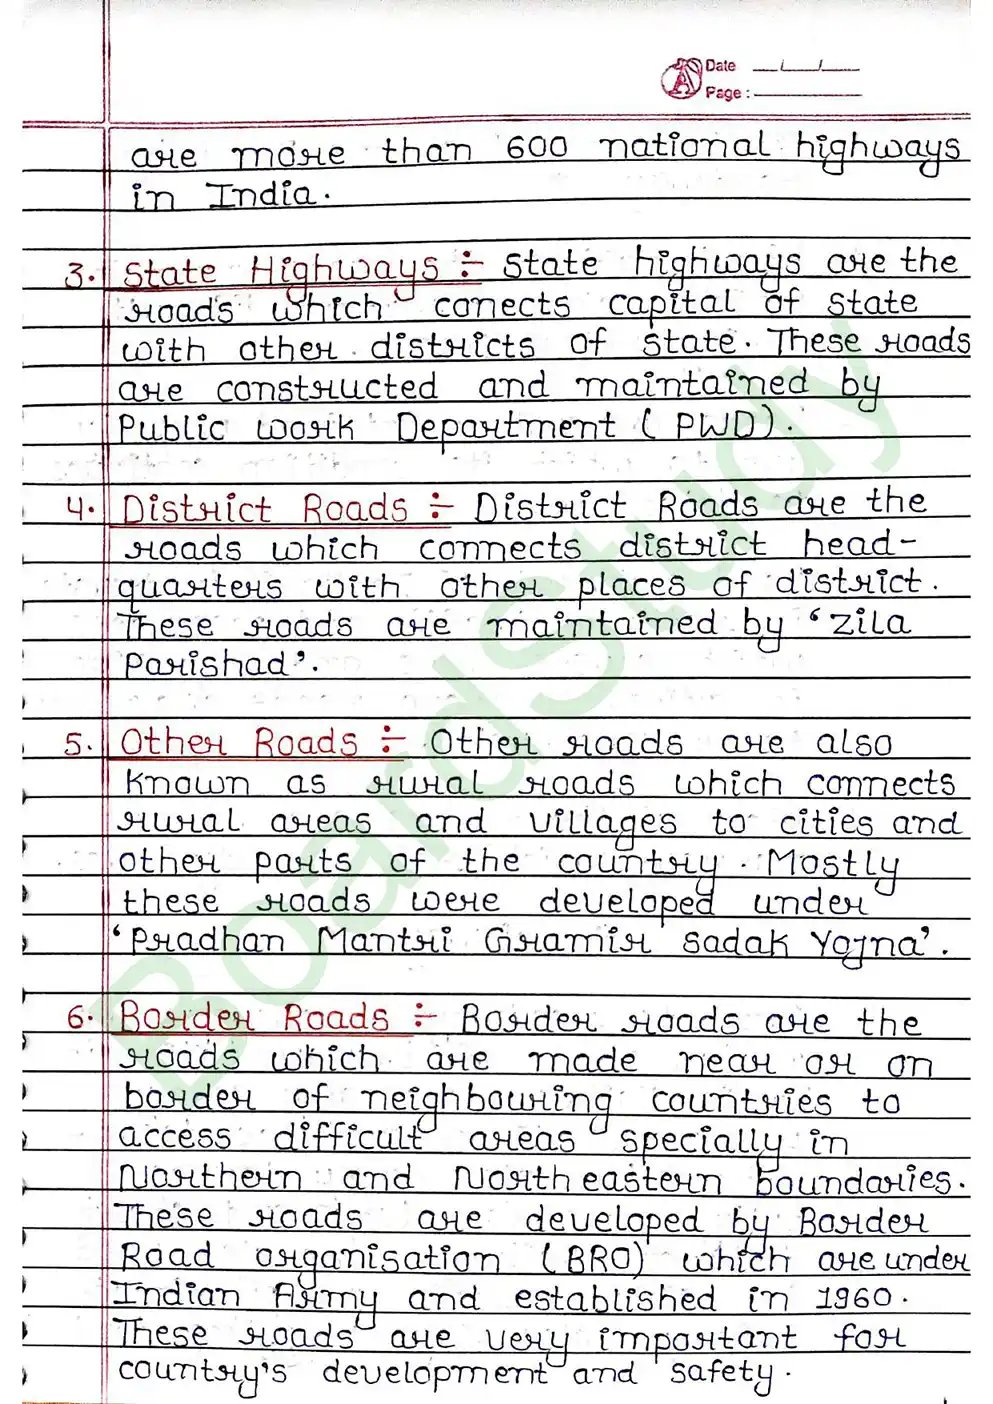 Date __/__/__
Page :
are more than 600 national highways
in India.
3. State Highways ÷ State highways are the
roads which conects capital of state
with other districts of state. These roads
are constructed and maintained by
Public work Department ( PWD).
4. District Roads ÷ District Roads are the
roads which connects district head-
quarters with other places of district.
These roads are maintained by 'Zila
Parishad'.
5. Other Roads ÷ Other roads are also
known as rural roads which connects
rural areas and villages to cities and
other parts of the country. Mostly
these roads were developed under
'Pradhan Mantri Gramir Sadak Yojna'.
6. Border Roads ÷ Border roads are the
roads which are made near or on
border of neighbouring countries to
access difficult areas specially in
Northern and North eastern boundaries.
These roads are developed by Border
Road organisation (BRO) which are under
Indian Army and established in 1960.
These roads are very important for
country's development and safety.
BoardStudy